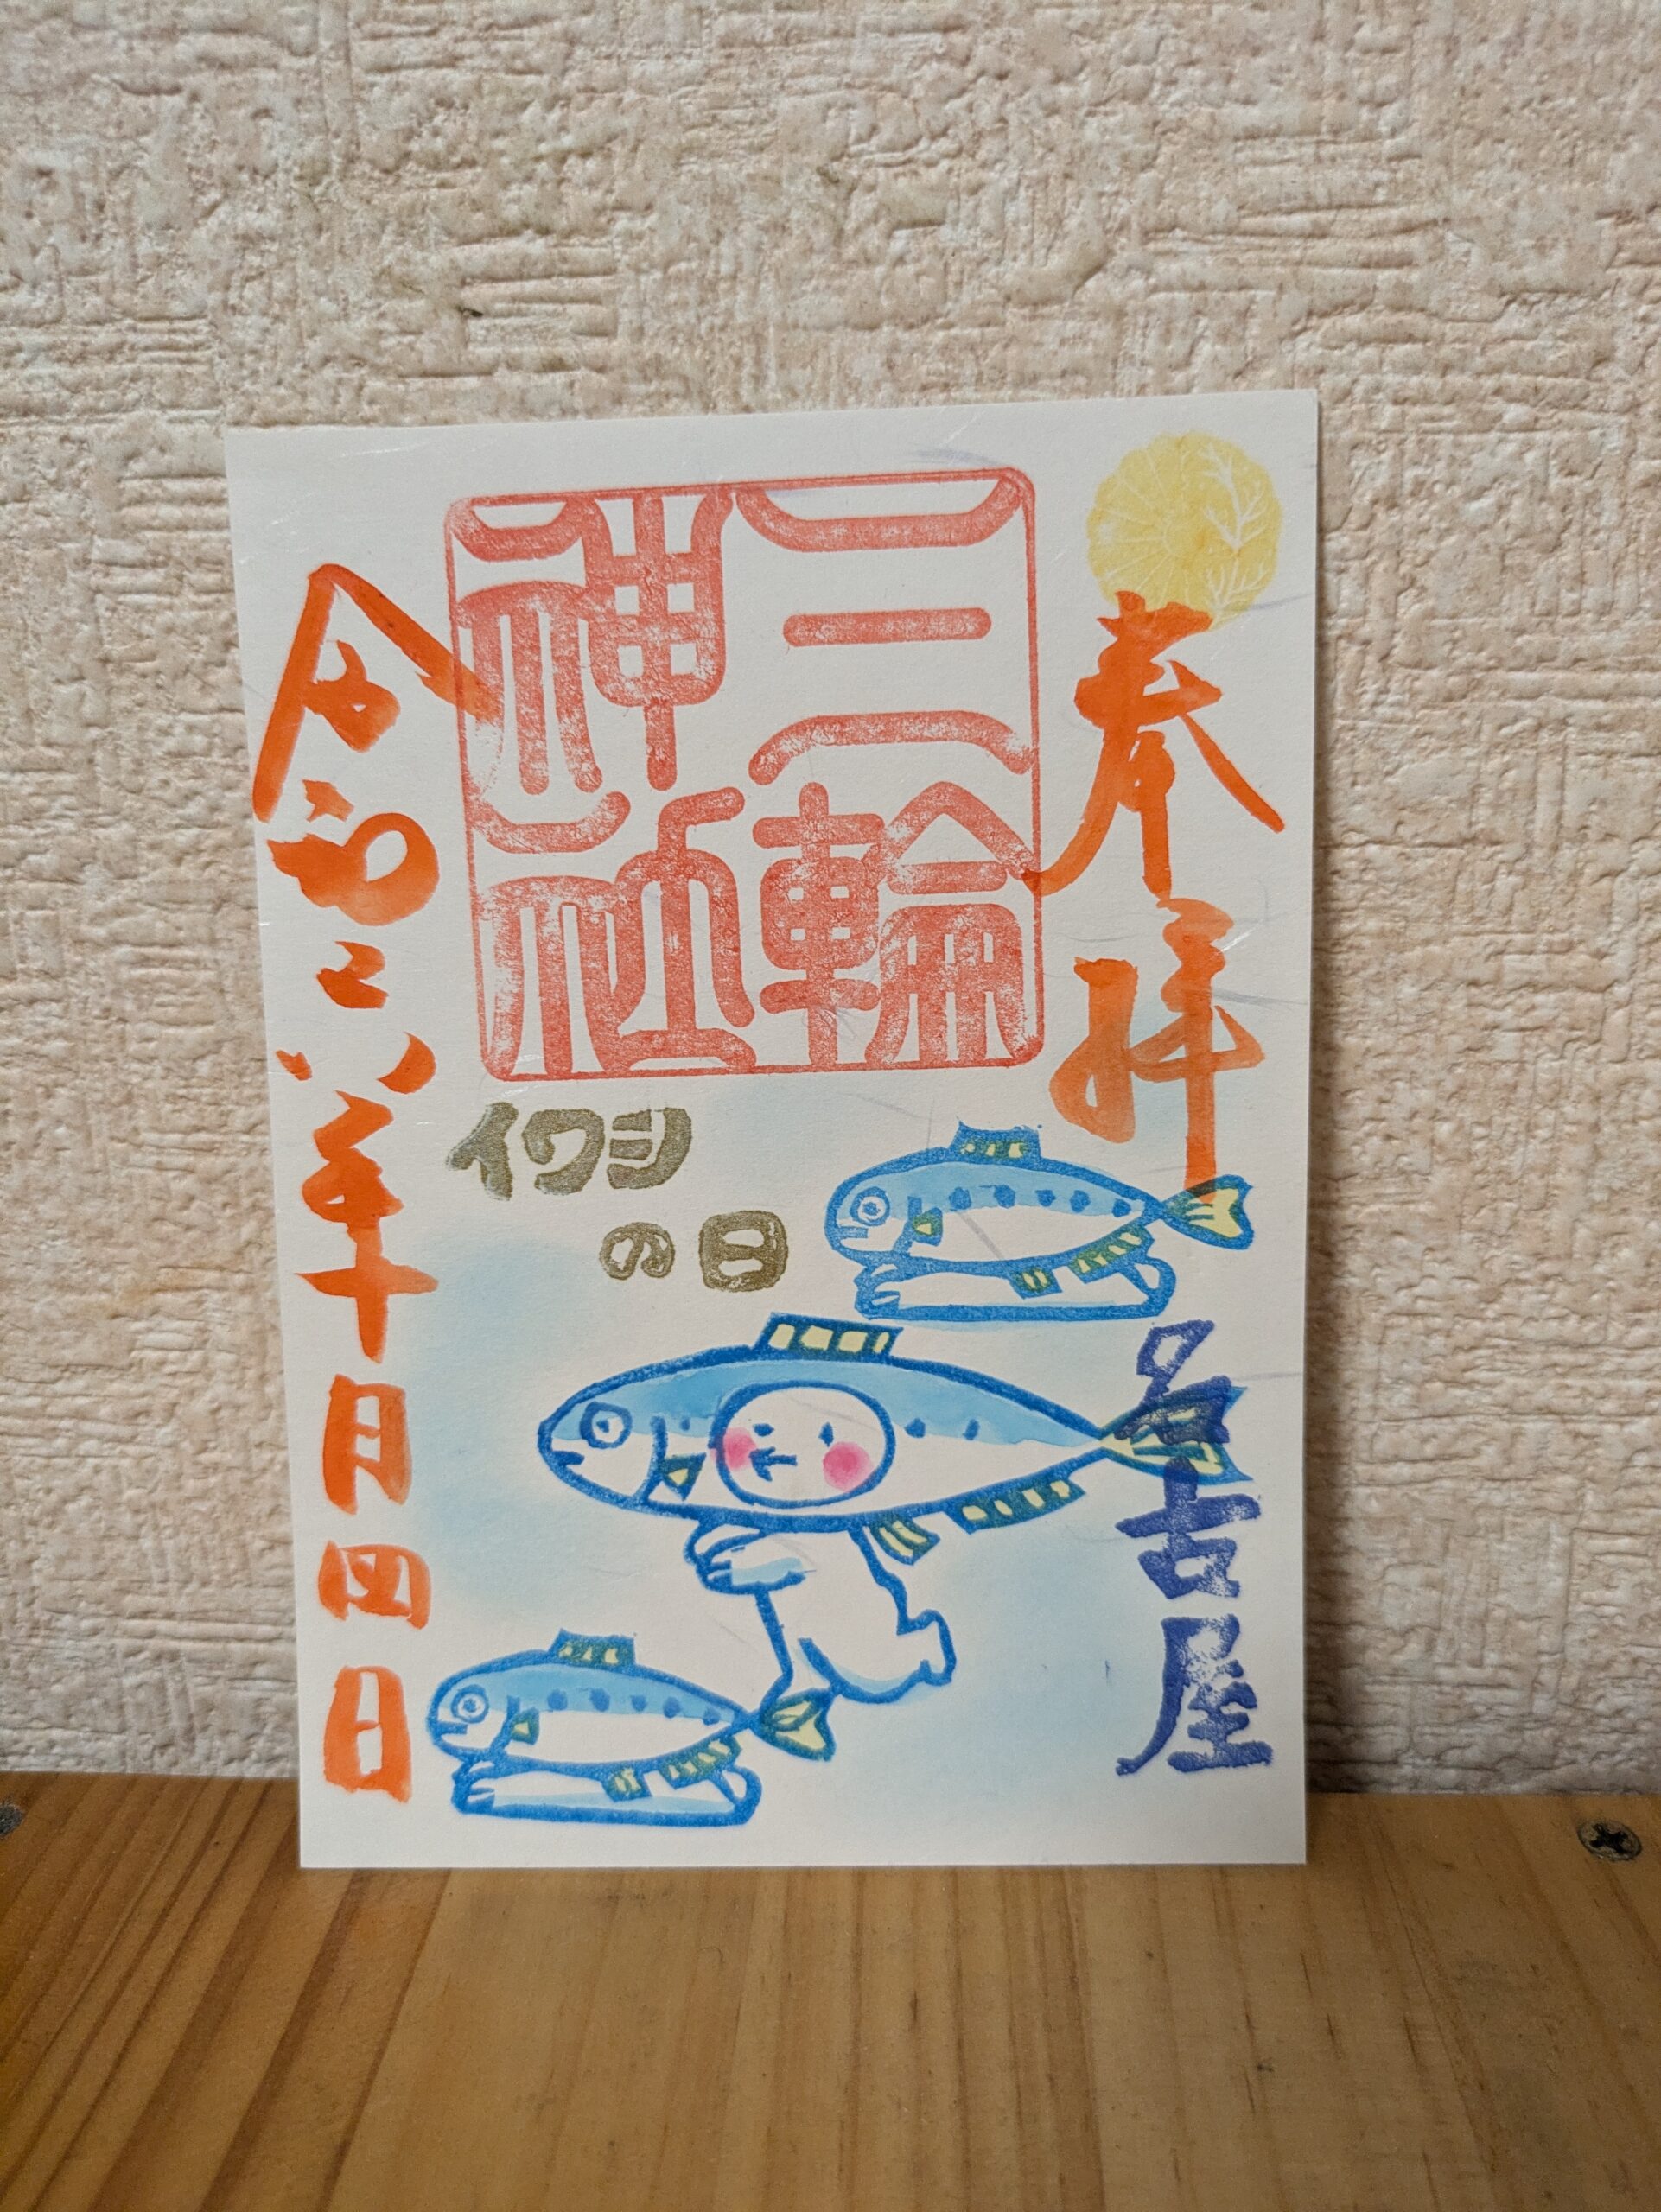 奉拝
名古屋
三輪
神社
イワシ
の日
令和六年十月四日